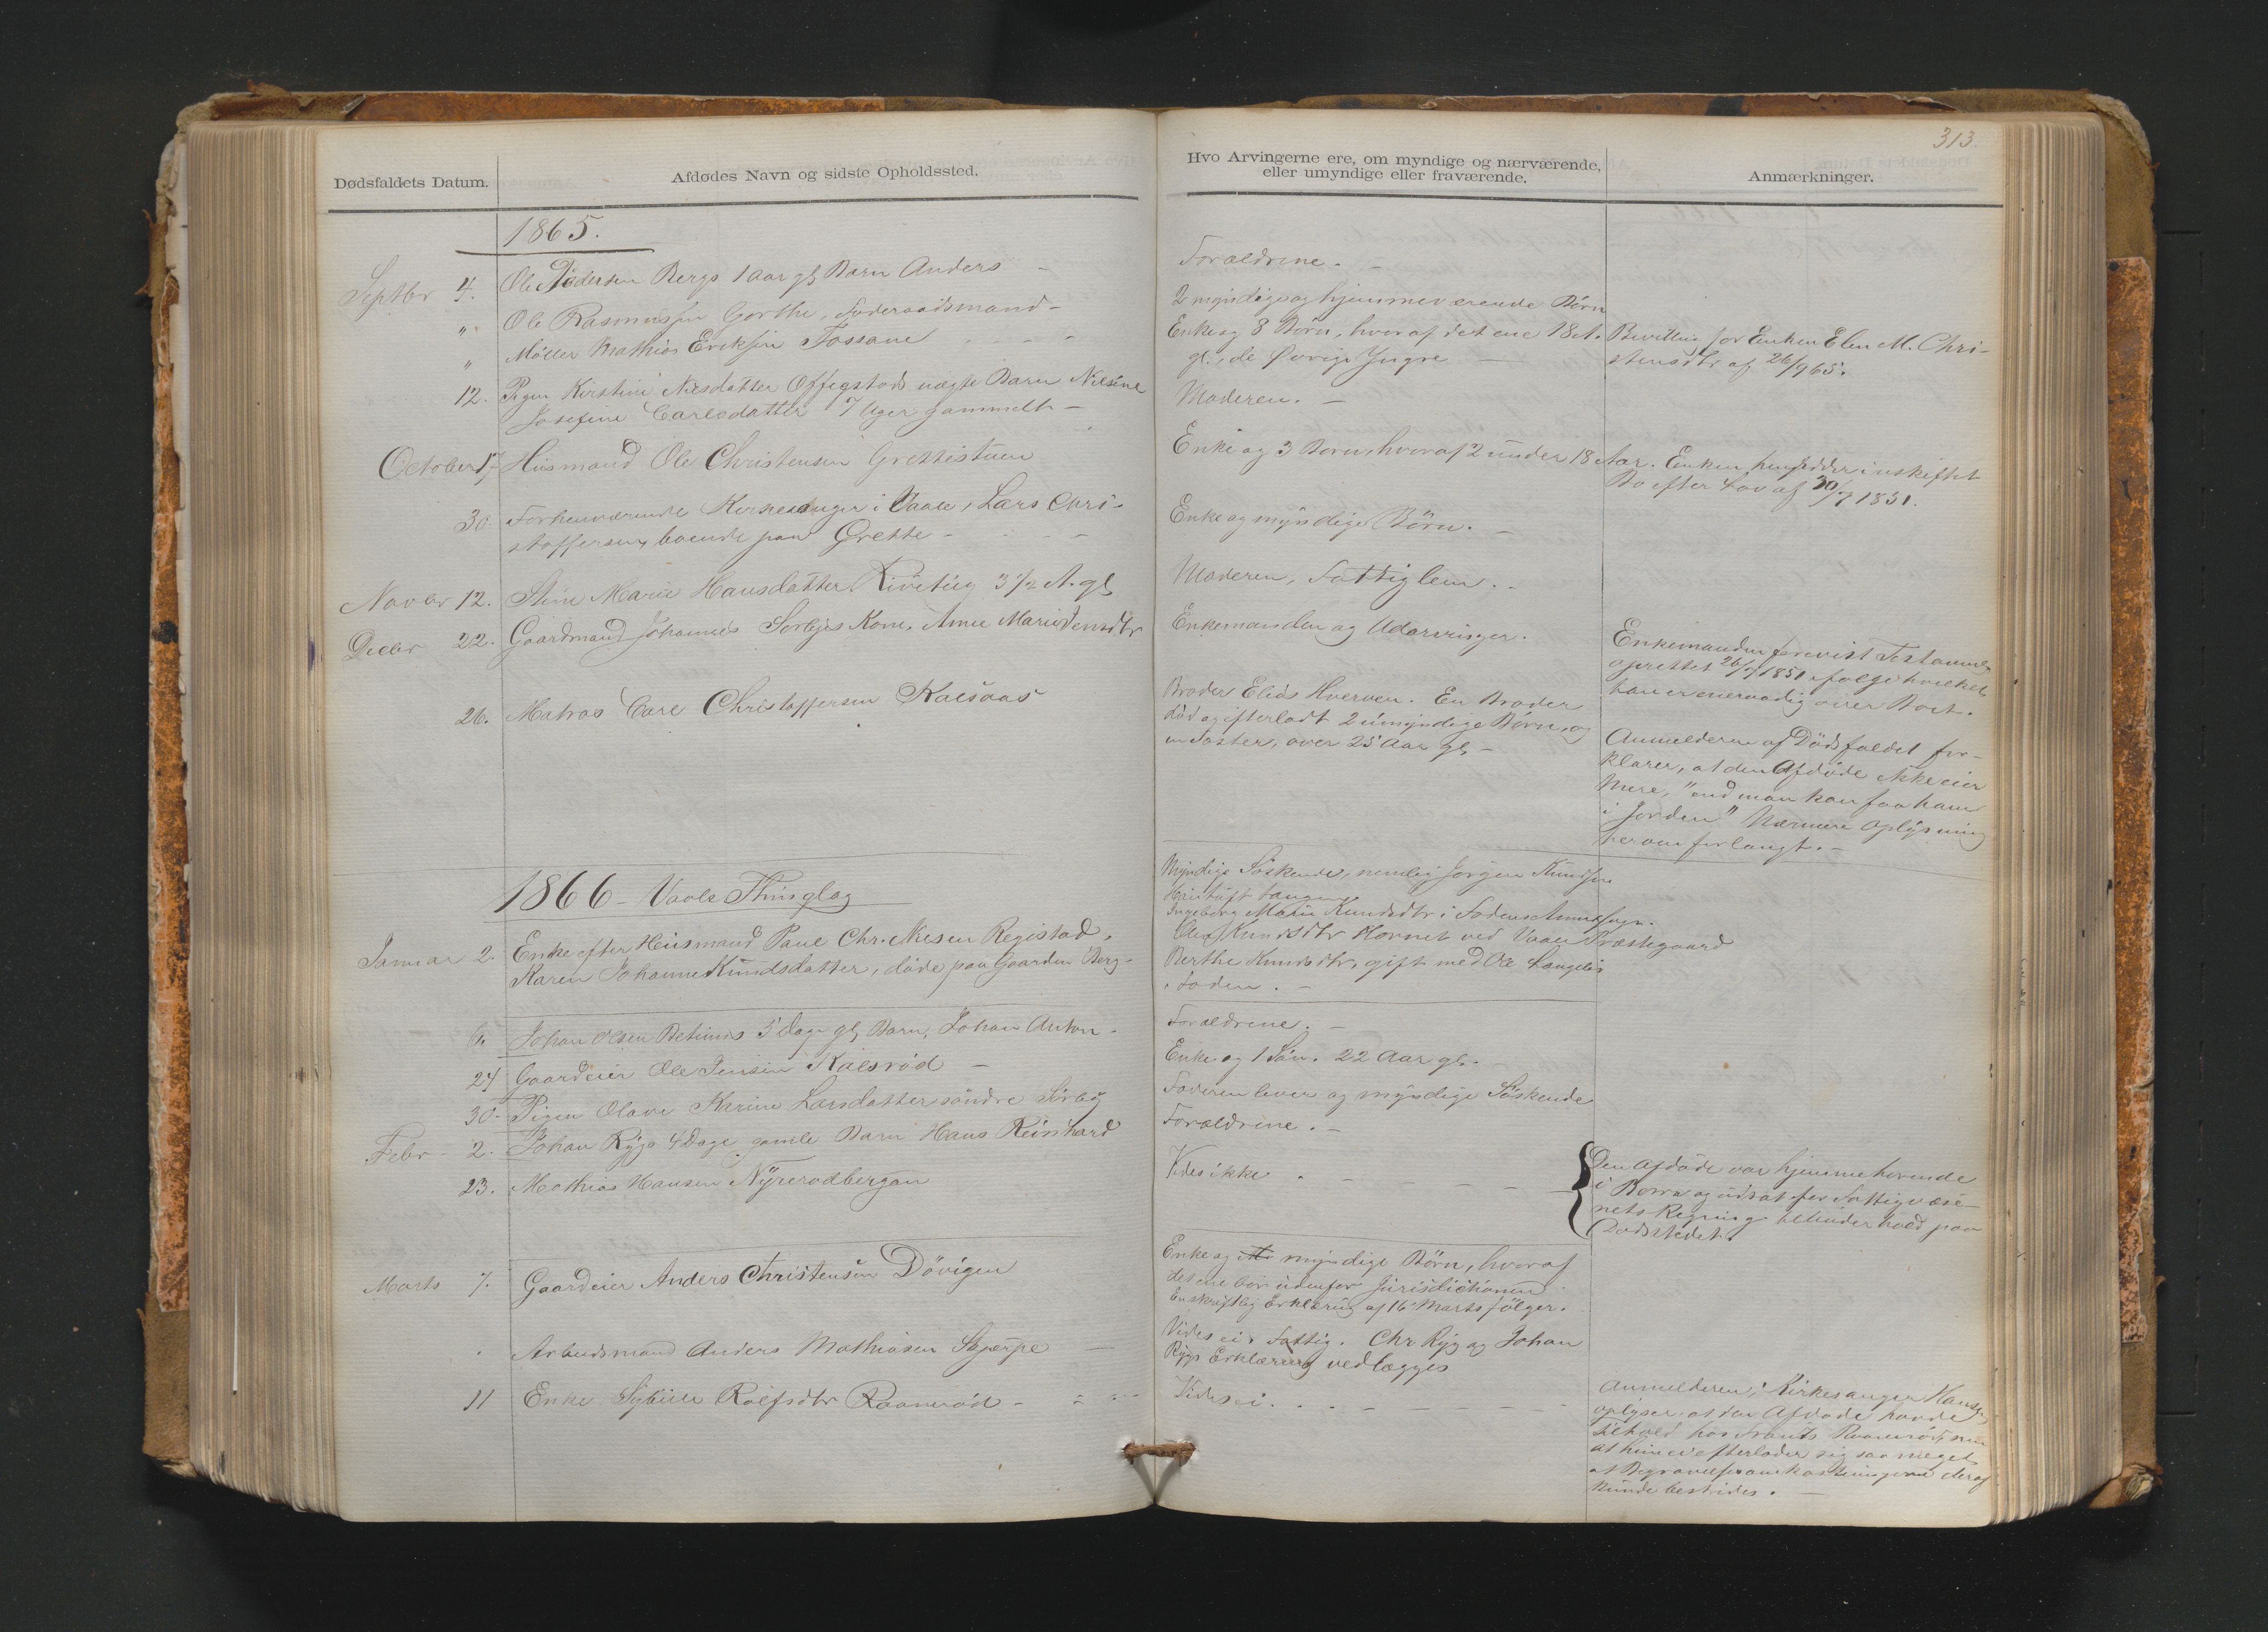 313.
Dødsfaldets Datum.
Afdødes Navn og sidste Opholdssted.
Hvo Arvingerne ere, om myndige og nærværende,
eller umyndige eller fraværende.
Anmærkninger.
1865.
Septbr 4. Ole Pedersen Bergs 1 Aar gl, Barn Anders -
Forældrene. -
" Ole Rasmussen Gorthe, Føderaadsmand -
2 myndige og hjemmeværende Børn
" Møller Mathias Eriksen Fossane - - -
Enke og 8 Børn, hvoraf det ene 18 A.
gl., de Øvrige Yngre -
Bevilling for Enken Elen M. Chri-
stensdtr af 26/9 65.
12. Pigen Kirstine Nilsdatter Offigstads uægte Barn Nilsine
Josefine Carlsdatter 7 Uger gammelt -
Moderen. -
October 17 Husmand Ole Christensen Grettestuen
Enke og 3 Børn, hvoraf 2 under 18 Aar. Enken hensidder i uskiftet
Bo efter Lov af 30/7 1851.
30 Forhenværende Kirkesanger i Vaale, Lars Chri-
stoffersen, boende paa Grette - - -
Enke og myndige Børn. -
Novbr 12. Stine Marie Hansdatter 3 1/2 A. gl,
Moderen, Fattiglem. -
Decbr 22. Gaardmand Johannes Sørbyes Kone, Anne Marie Jensdtr
Enkemanden og Udarvinger.
Enkemanden forevist Testament
oprettet 26/7 1851 ifølge hvilket
han er eneraadig over Boet.
26. Matros Carl Christoffersen Kalsaas
Broder Elias Hverven. En Broder
død og efterladt 2 umyndige Børn, og
en Søster, over 25 Aar gl, -
Anmelderen af Dødsfaldet for-
klarer, at den Afdøde ikke eier
Mere, "end man kan faa ham
i Jorden" Nærmere Oplysning
herom forlangt. -
1866 - Vaale Thinglag
Januar 2. Enke efter Husmand Paul Chr. Nilsen Registad,
Karen Johanne Knudsdatter, døde paa Gaarden Berg -
Myndige Søskende, nemlig Jørgen Knudsen
Ingeborg Marie Knudsdtr i
Knudsdtr Hornet ved Vaale Præstegaard
Berthe Knudsdtr, gift med Ole
6. Johan Olsen 5 Dage gl, Barn, Johan Anton -
Forældrene. -
24 Gaardeier Ole Jensen Kalsrød -
Enke og 1 Søn. 22 Aar gl. -
30. Pigen Olave Karine Larsdatter søndre Sørby
Faderen lever og myndige Søskende
Febr - 2. Johan Rygs 4 Dage gamle Barn Hans Reinhard
Forældrene. -
23. Mathias Hansen Nyrerødbergan
Vides ikke . - - - - -
Den Afdøde var hjemmehørende
i Borre og udsat for Fattigvæse-
nets Regning til Underhold paa
Dødsstedet.
Marts 7. Gaardeier Anders Christensen Døvigen
Enke og myndige Børn, hvoraf
det ene bor udenfor Jurisdictionen
En skriftlig Erklæring af 16 Marts følger.
" Arbeidsmand Anders Mathiasen Skjærpe -
Vides ei. Fattig. Chr Ryg og Johan
Rygs Erklæring vedlægges
11 Enke Sybille Rolfsdtr Raanerød - - -
Vides ei. - - - - -
Anmelderen, Kirkesanger Hansen,
oplyser at den Afdøde havde
Tilhold hos Frants Raanerød, men
at hun ei efterlader sig saa meget
at Begravelsesomkostningerne deraf
kunde bestrides. -